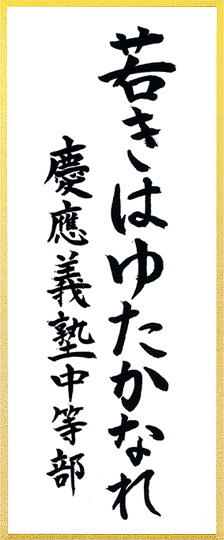 若きはゆたかなれ
慶應義塾中等部